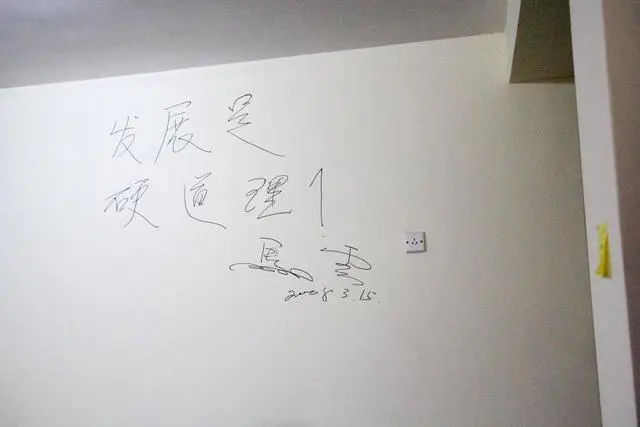 发展是
硬道理！
馬雲
2008 3.15.